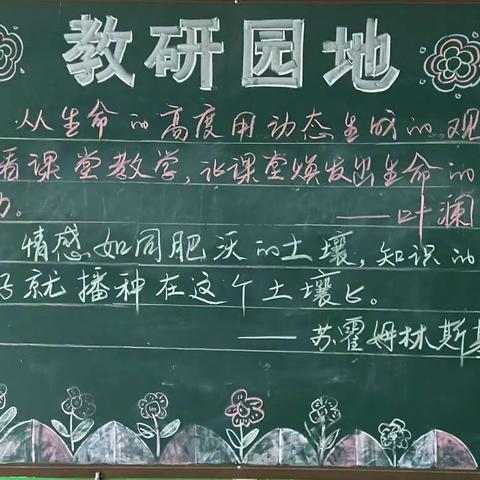 教研园地
从生命的高度用动态生成的观
看课堂教学,让课堂焕发出生命的
力。
——叶澜
情感如同肥沃的土壤,知识的
子就播种在这个土壤上。
——苏霍姆林斯基